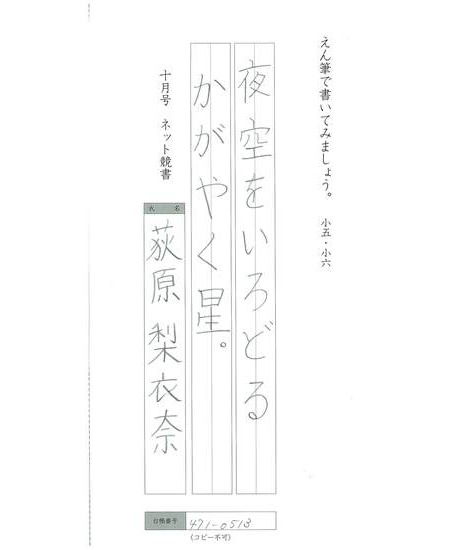 えん筆で書いてみましょう。 小五・小六
夜空をいろどる
かがやく星。
十月号 ネット競書
氏 名
荻原 梨衣奈
台帳番号 471-0513
(コピー不可)